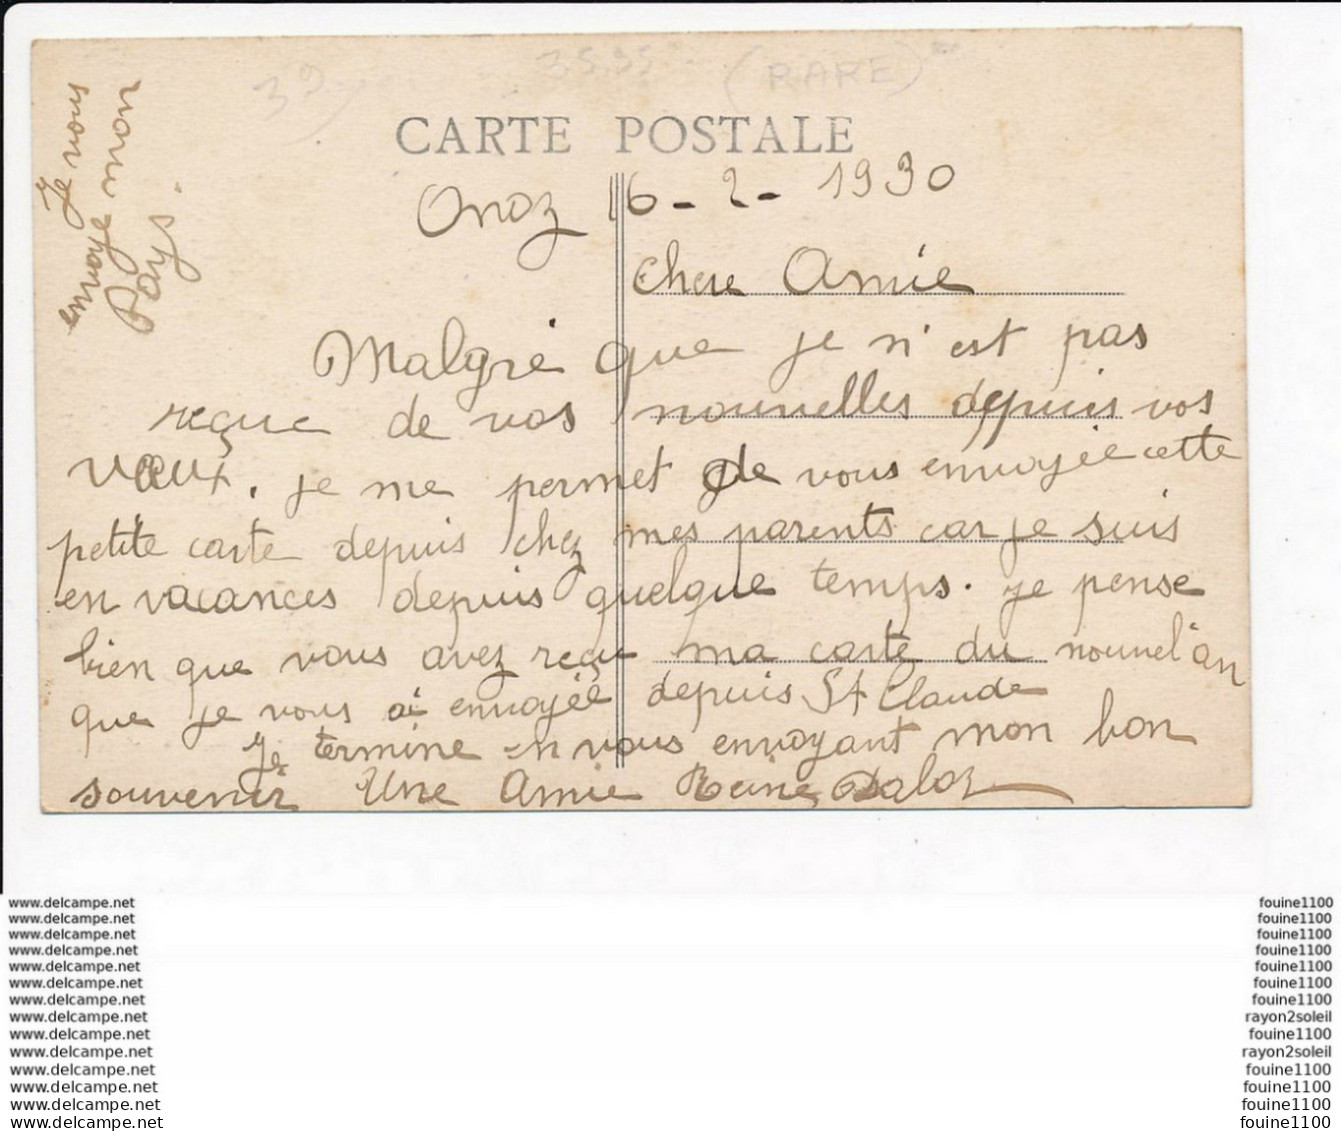 39
3535
(RARE)
CARTE POSTALE
Onoz 16-2-1930
Chere Amie
Malgré que je n'est pas
reçue de vos nouvelles depuis vos
vœux. je me permet de vous envoyée cette
petite carte depuis chez mes parents car je suis
en vacances depuis quelque temps. je pense
bien que vous avez reçu ma carte du nouvel an
que je vous ai envoyée depuis St Claude
Je termine en vous envoyant mon bon
souvenir Une Amie Reine Daloz
Je vous
envoye
mon
pays.
www.delcampe.net fouine1100
www.delcampe.net fouine1100
www.delcampe.net fouine1100
www.delcampe.net fouine1100
www.delcampe.net fouine1100
www.delcampe.net fouine1100
www.delcampe.net fouine1100
www.delcampe.net rayon2soleil
www.delcampe.net fouine1100
www.delcampe.net rayon2soleil
www.delcampe.net fouine1100
www.delcampe.net fouine1100
www.delcampe.net fouine1100
www.delcampe.net fouine1100